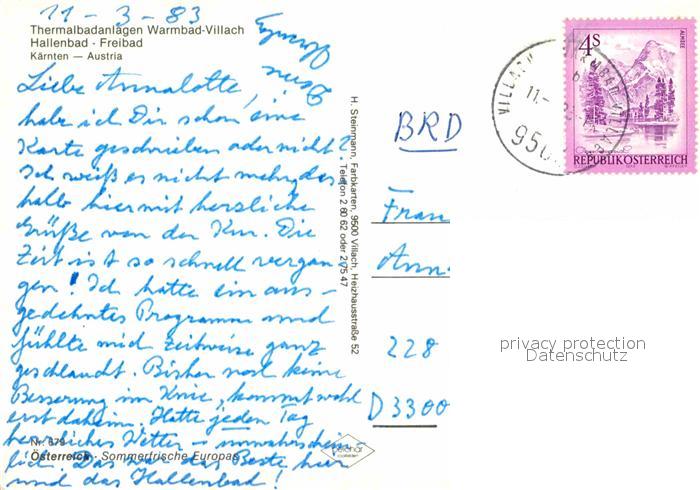 11-3-83
Thermalbadanlagen Warmbad-Villach
Hallenbad · Freibad
Kärnten — Austria
Liebe Annalotte,
habe ich Dir schon eine
Karte geschrieben oder nicht?
Ich weiß es nicht mehr, des
halb hiermit herzliche
Grüße von der Kur. Die
Zeit ist so schnell vergan
gen! Ich hatte ein aus-
gedehntes Programm und
fühlte mich zeitweise ganz
geschlaucht. Bisher noch keine
Besserung im Knie, kommt wohl
erst daheim. Hatte jeden Tag
herrliches Wetter - unwahrschein-
lich. Das war das Beste hier
und das Hallenbad!
Deine
Nr. 679
Österreich · Sommerfrische Europas
H. Steinmann, Farbkarten, 9500 Villach, Heizhausstraße 52
Telefon 2 60 62 oder 2 75 47
BRD
Frau
Ann
228
D 3300
4S
ALMSEE
REPUBLIK ÖSTERREICH
VILLACH
WARMBAD VILLACH
11.
950
privacy protection
Datenschutz